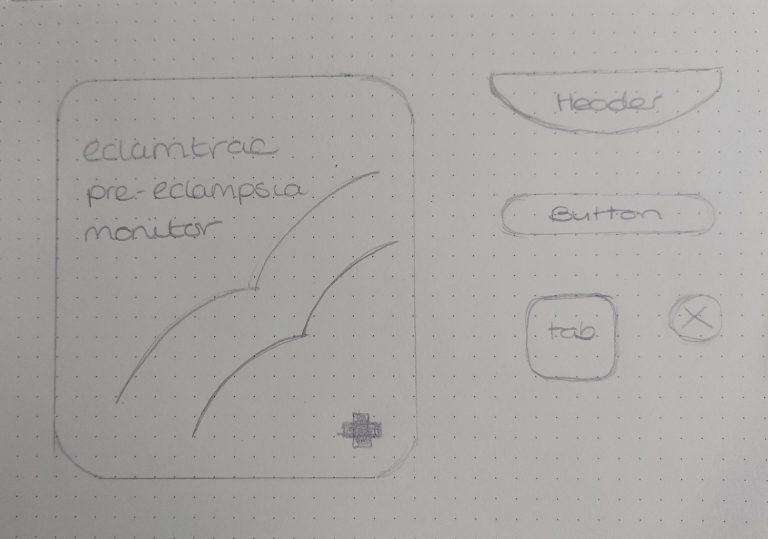 eclamtrac
pre-eclampsia
monitor
Header
Button
tab
X